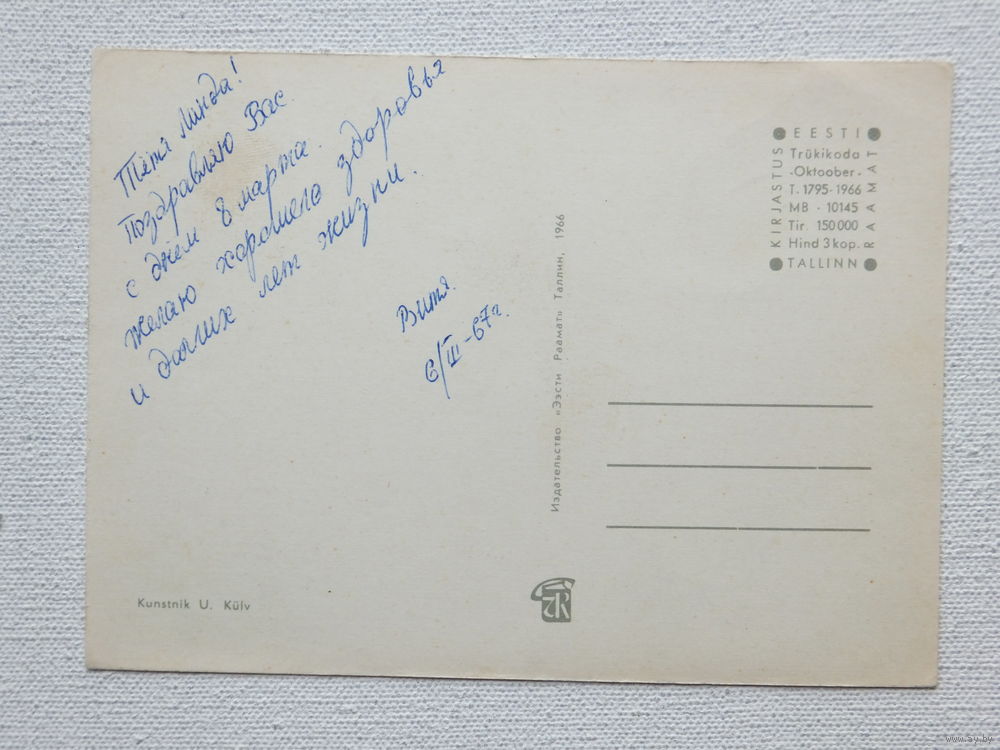 Тётя Линда!
Поздравляю Вас
с днем 8 марта.
Желаю хорошего здоровья
и долгих лет жизни.
Витя.
6/III-67г.
Kunstnik U. Külv
Издательство «Ээсти Раамат» Таллин, 1966
EESTI
KIRJASTUS
RAAMAT
Trükikoda
·Oktoober·
T. 1795·1966
MB · 10145
Tir. 150000
Hind 3 kop.
TALLINN
www.ay.by